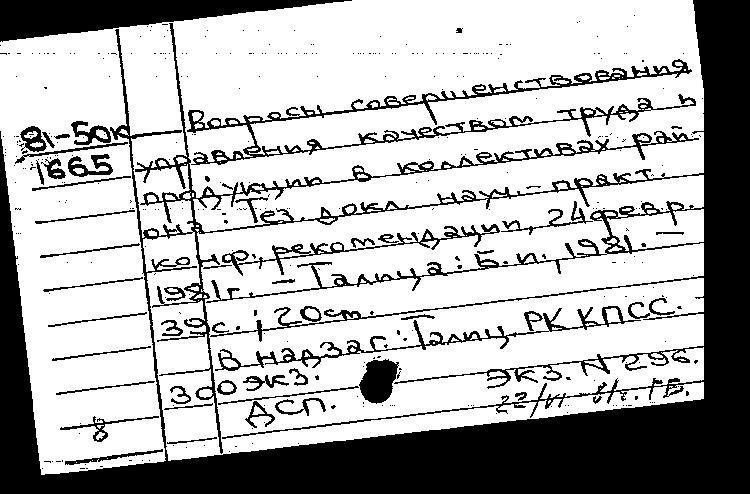 81-50к
1665
Вопросы совершенствования
управления качеством труда и
продукции в коллективах рай-
она: Тез. докл. науч.-практ.
конф., рекомендации, 24 февр.
1981г. - Талица: Б.и., 1981. -
39с.; 20см.
В надзаг.: Талиц. РК КПСС.
300экз.
ДСП.
экз. N 296.
22/VI-81г. ГБ.
8